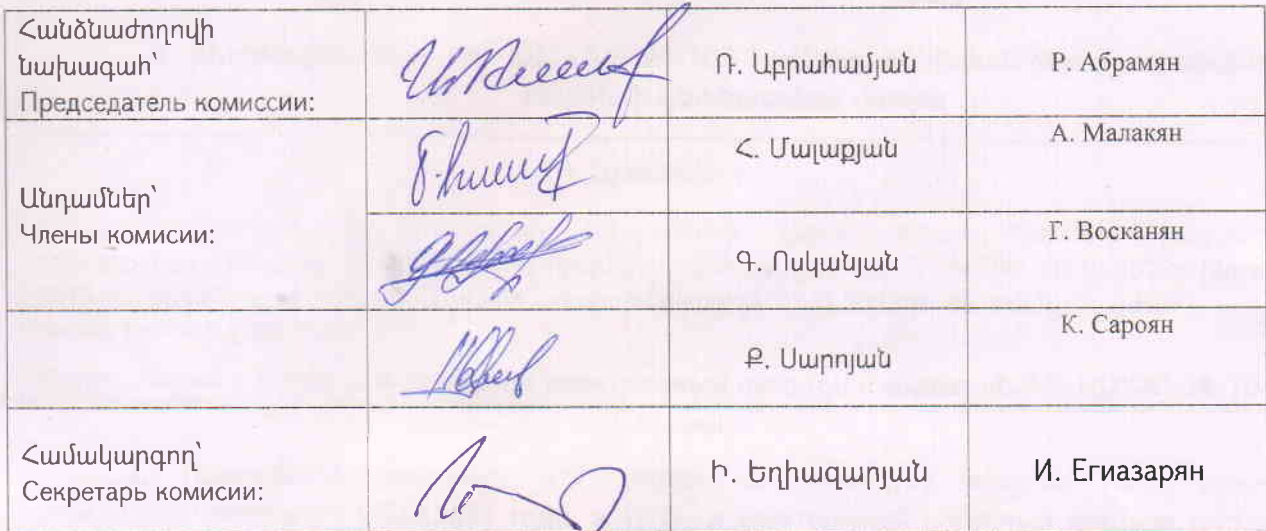 Հանձնաժողովի
նախագահ՝
Председатель комиссии:
Ռ. Աբրահամյան
Р. Абрамян
Անդամներ՝
Члены комисии:
Հ. Մալաքյան
А. Малакян
Գ. Ոսկանյան
Г. Восканян
Ք. Սարոյան
К. Сароян
Համակարգող՝
Секретарь комисии:
Ի. Եղիազարյան
И. Егиазарян